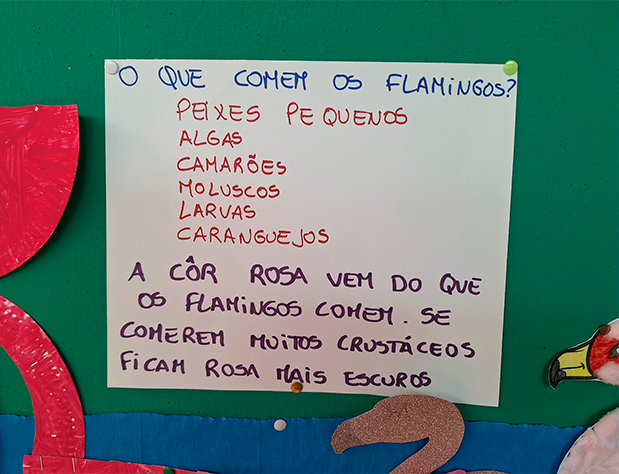 O QUE COMEM OS FLAMINGOS?
PEIXES PEQUENOS
ALGAS
CAMARÕES
MOLUSCOS
LARVAS
CARANGUEJOS
A CÔR ROSA VEM DO QUE
OS FLAMINGOS COMEM. SE
COMEREM MUITOS CRUSTÁCEOS
FICAM ROSA MAIS ESCUROS